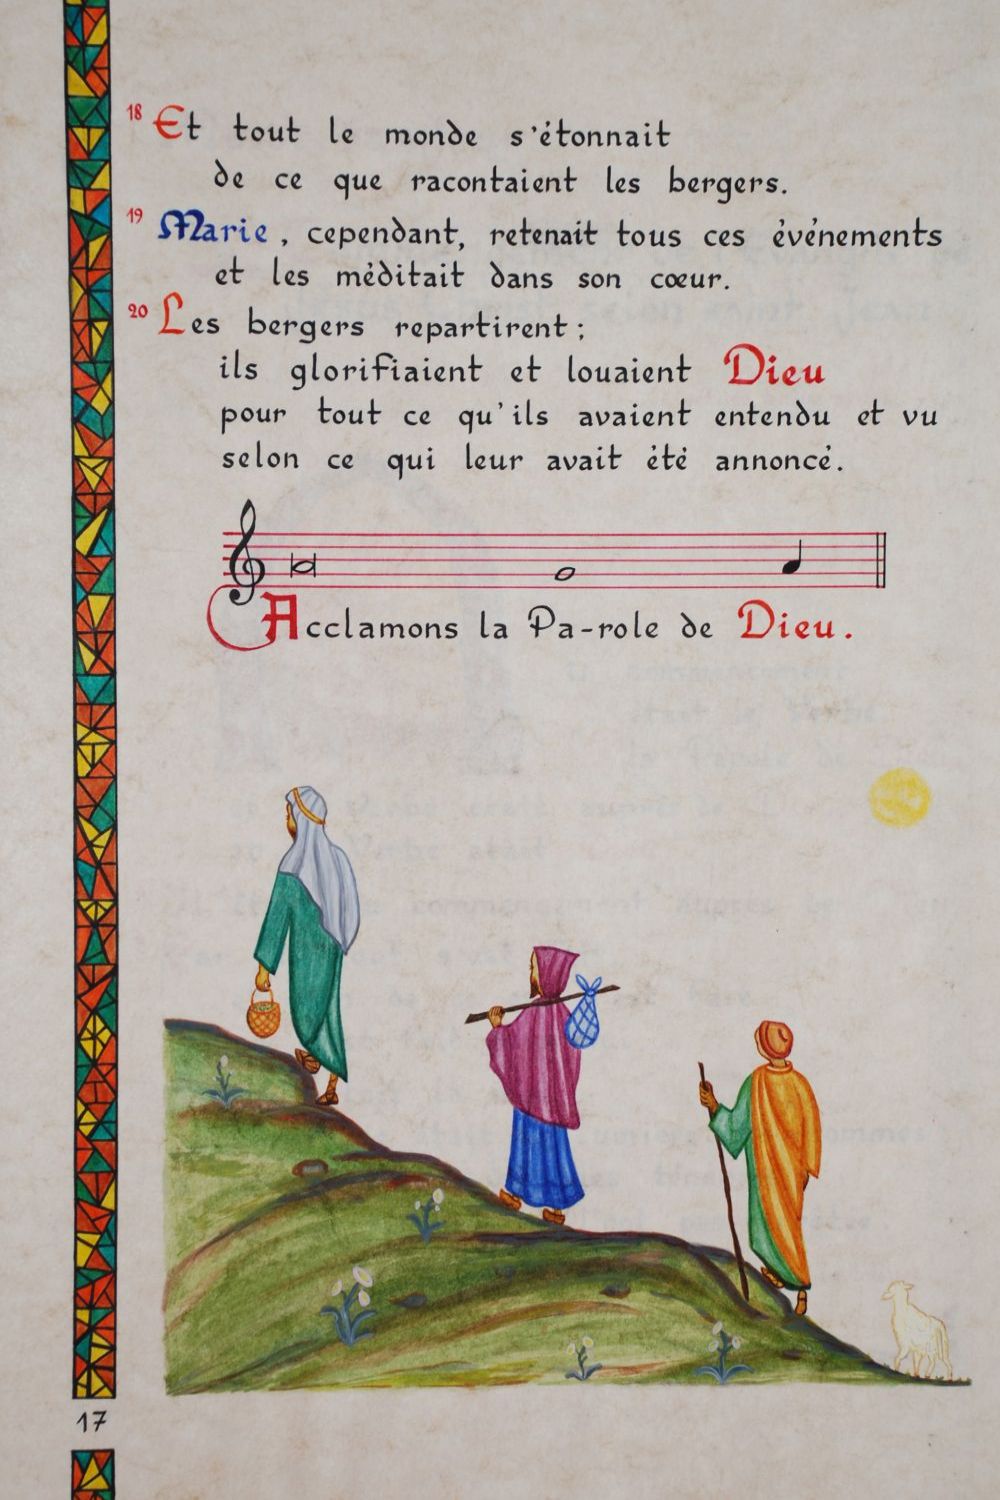 18 Et tout le monde s'étonnait
de ce que racontaient les bergers.
19 Marie, cependant, retenait tous ces événements
et les méditait dans son cœur.
20 Les bergers repartirent ;
ils glorifiaient et louaient Dieu
pour tout ce qu'ils avaient entendu et vu
selon ce qui leur avait été annoncé.
Acclamons la Pa-role de Dieu.
17